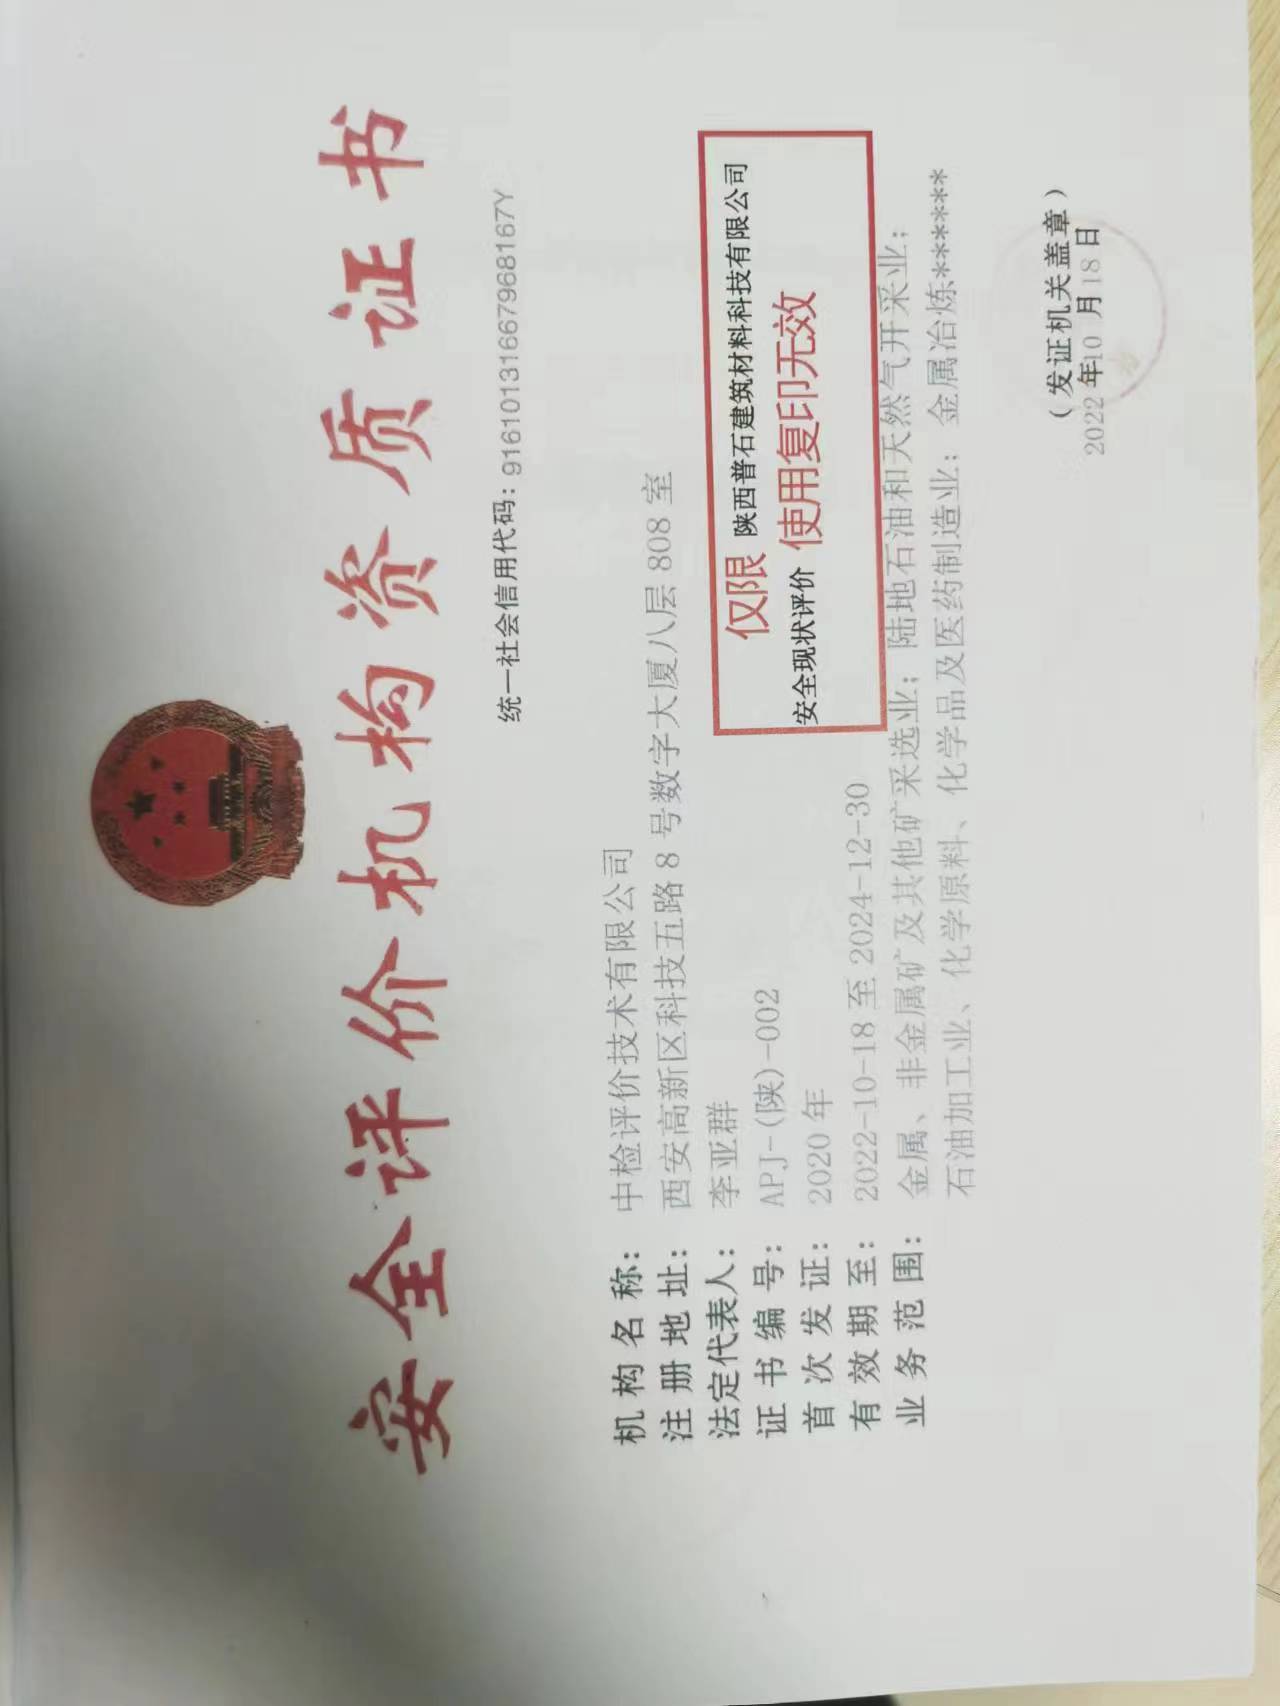 安全评价机构资质证书
统一社会信用代码：91610131667968167Y
机构名称：中检评价技术有限公司
注册地址：西安高新区科技五路8号数字大厦八层808室
法定代表人：李亚群
证书编号：APJ-(陕)-002
首次发证：2020年
有效期至：2022-10-18至2024-12-30
业务范围：金属、非金属矿及其他矿采选业；陆地石油和天然气开采业；
石油加工业、化学原料、化学品及医药制造业；金属冶炼******
仅限 陕西普石建筑材料科技有限公司
安全现状评价 使用复印无效
（发证机关盖章）
2022年10月18日